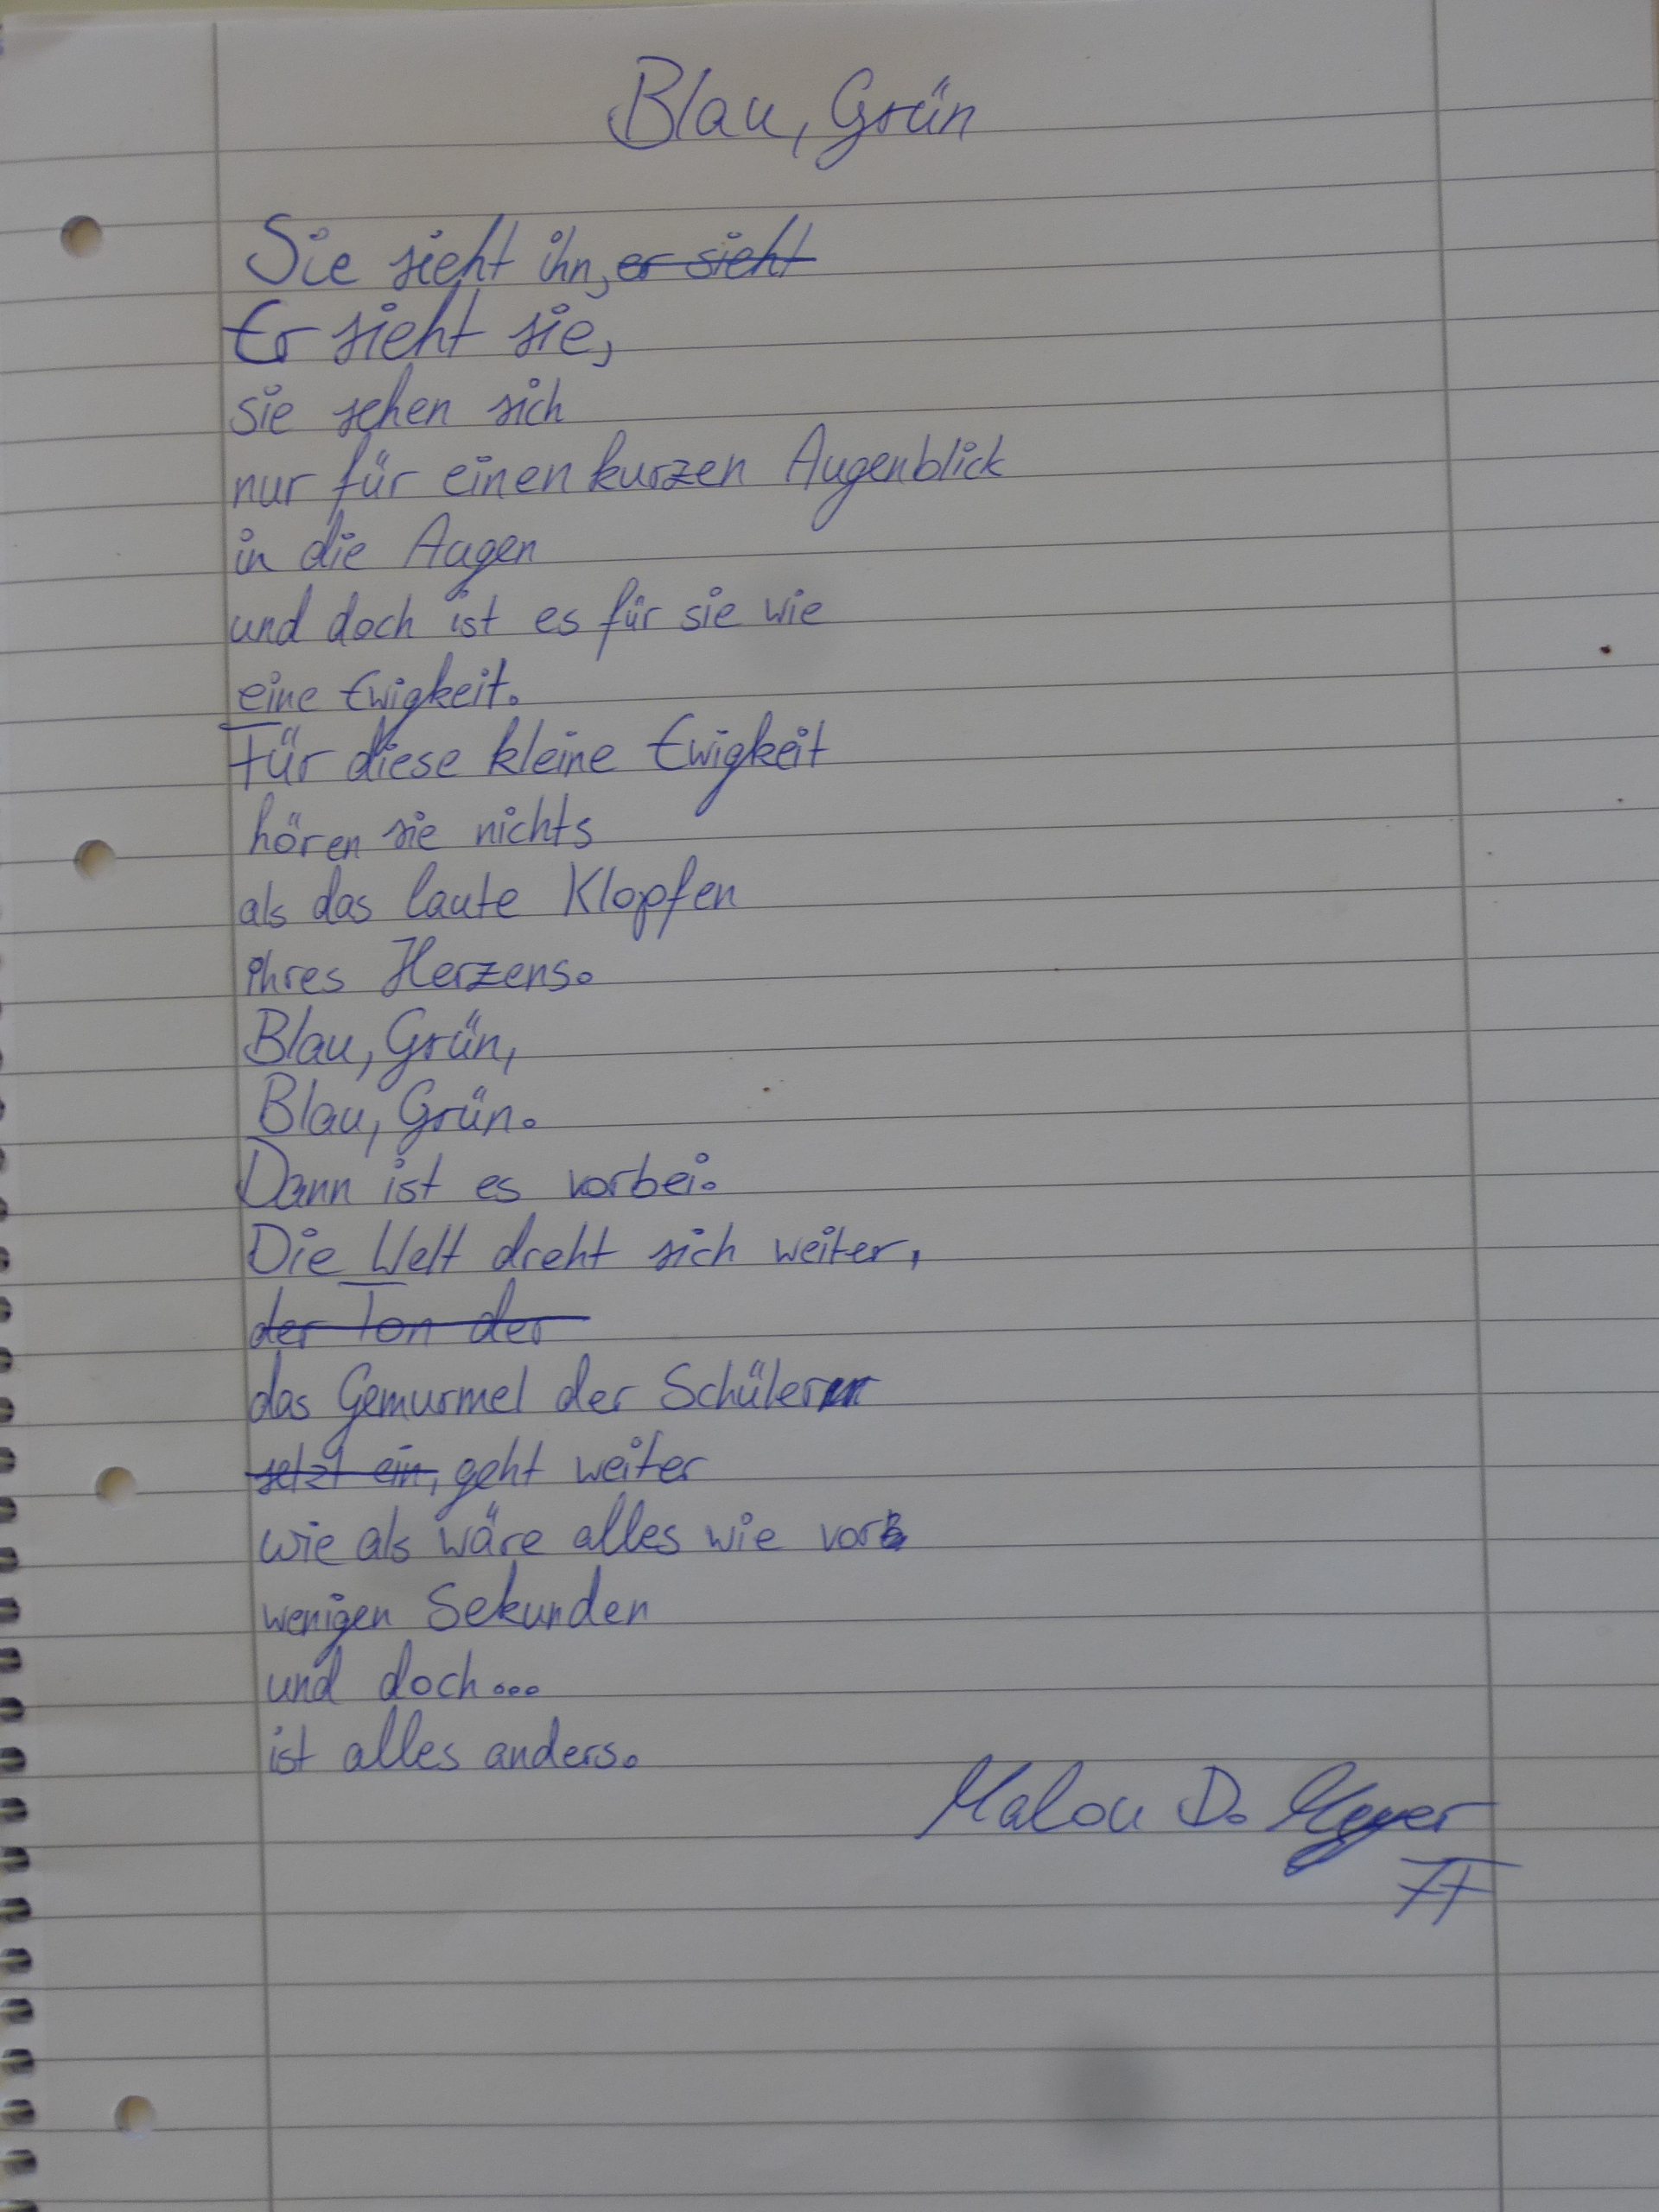 Blau, Grün
Sie sieht ihn, er sieht
Er sieht sie,
sie sehen sich
nur für einen kurzen Augenblick
in die Augen
und doch ist es für sie wie
eine Ewigkeit.
Für diese kleine Ewigkeit
hören sie nichts
als das laute Klopfen
ihres Herzens.
Blau, Grün,
Blau, Grün.
Dann ist es vorbei.
Die Welt dreht sich weiter,
der Ton der
das Gemurmel der Schüler
setzt ein, geht weiter
wie als wäre alles wie vor
wenigen Sekunden
und doch...
ist alles anders.
Malou D. Meyer